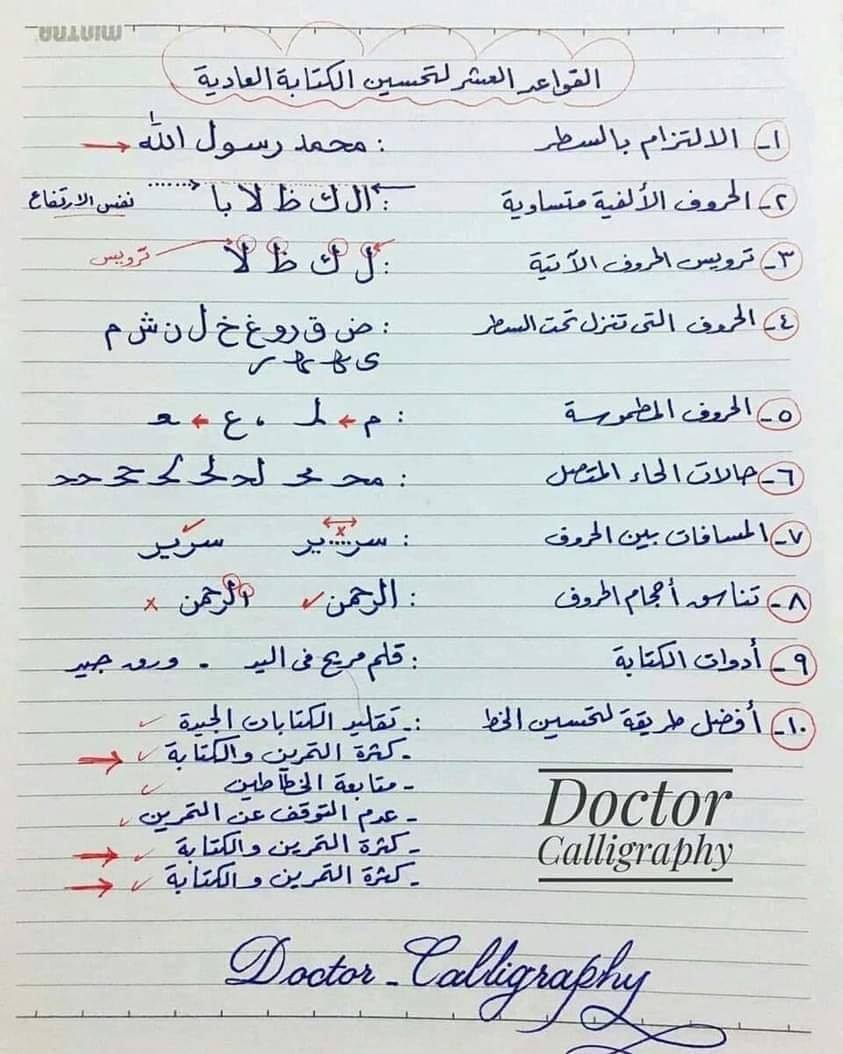 mintra
القواعد العشر لتحسين الكتابة العادية
١- الالتزام بالسطر : محمد رسول الله
٢- الحروف الألفية متساوية : ال ك ظ لا با نفس الارتفاع
٣- ترويس الحروف الآتية : ل ك ظ لا ترويس
٤- الحروف التى تنزل تحت السطر : ض ق ر و غ خ ل ن ش م
ى
٥- الحروف المطموسة : م ← لم ، ع ← ـعـ
٦- حالات الحاء المتصل :
٧- المسافات بين الحروف : سرير x سرير ✓
٨- تناسق أحجام الحروف : الرحمن ✓ الرحمن x
٩- أدوات الكتابة : قلم مريح فى اليد . ورق جيد
١٠- أفضل طريقة لتحسين الخط :- تقليد الكتابات الجيدة ✓
- كثرة التمرين والكتابة ✓
- متابعة الخطاطين ✓
- عدم التوقف عن التمرين ✓
- كثرة التمرين والكتابة ✓
- كثرة التمرين والكتابة ✓
Doctor
Calligraphy
Doctor - Calligraphy